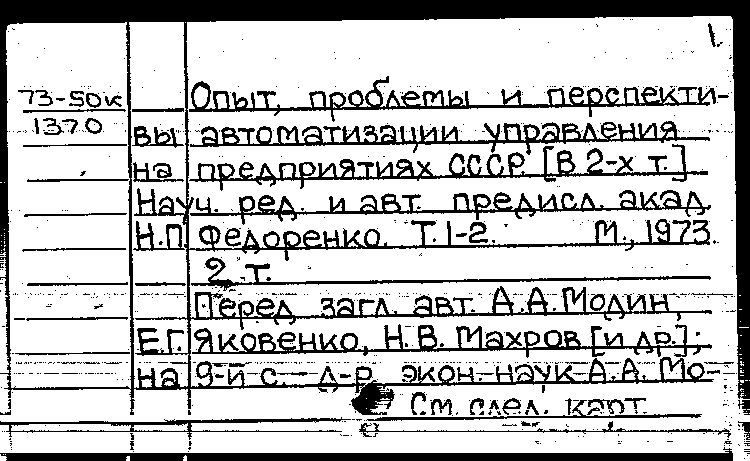 1.
73-50к
1370
Опыт, проблемы и перспекти-
вы автоматизации управления
на предприятиях СССР. [В 2-х т.]
Науч. ред. и авт. предисл. акад.
Н.П. Федоренко. Т. 1-2. М., 1973.
2 т.
Перед загл. авт. А.А. Модин,
Е.Г. Яковенко, Н.В. Махров [и др.];
на 9-й с. - д-р экон. наук А.А. Мо-
См. след. карт.